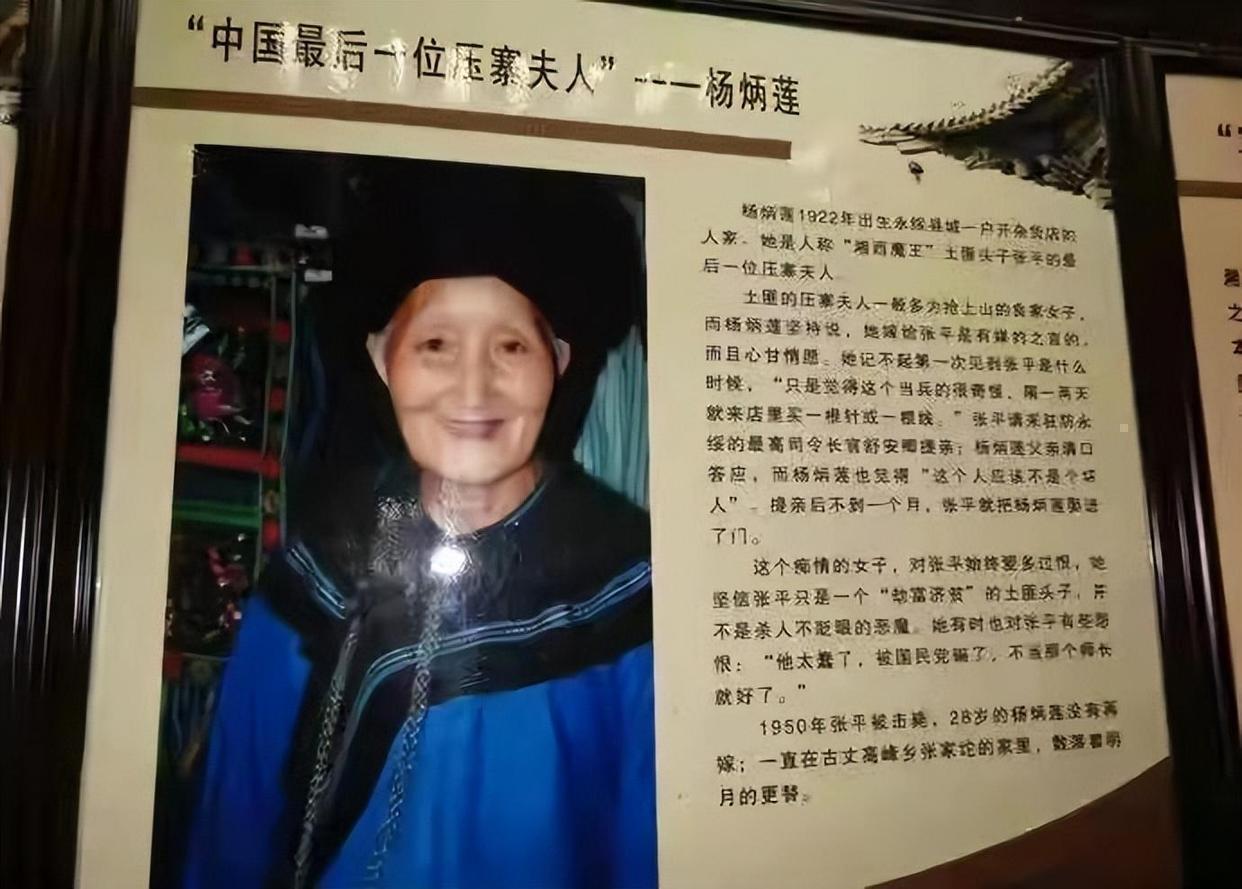 “中国最后一位压寨夫人”----杨炳莲
杨炳莲1922年出生永绥县城一户开杂货店的
人家。她是人称“湘西魔王”土匪头子张平的最
后一位压寨夫人
土匪的压寨夫人一般多为抢上山的良家女子，
而杨炳莲坚持说，她嫁给张平是有媒妁之言的，
而且心甘情愿。她记不起第一次见到张平是什么
时候，“只是觉得这个当兵的很奇怪，隔一两天
就来店里买一根针或一根线。”张平请来驻防永
绥的最高司令长官舒安卿提亲；杨炳莲父亲满口
答应，而杨炳莲也觉得“这个人应该不是个坏
人”。提亲后不到一个月，张平就把杨炳莲娶进
了门。
这个痴情的女子，对张平始终爱多过恨，她
坚信张平只是一个“劫富济贫”的土匪头子，并
不是杀人不眨眼的恶魔。她有时也对张平有些怨
恨：“他太蠢了，被国民党骗了，不当那个师长
就好了。”
1950年张平被击毙，28岁的杨炳莲没有再
嫁；一直在古丈高峰乡张家坨的家里，数落着明
月的更替。
“